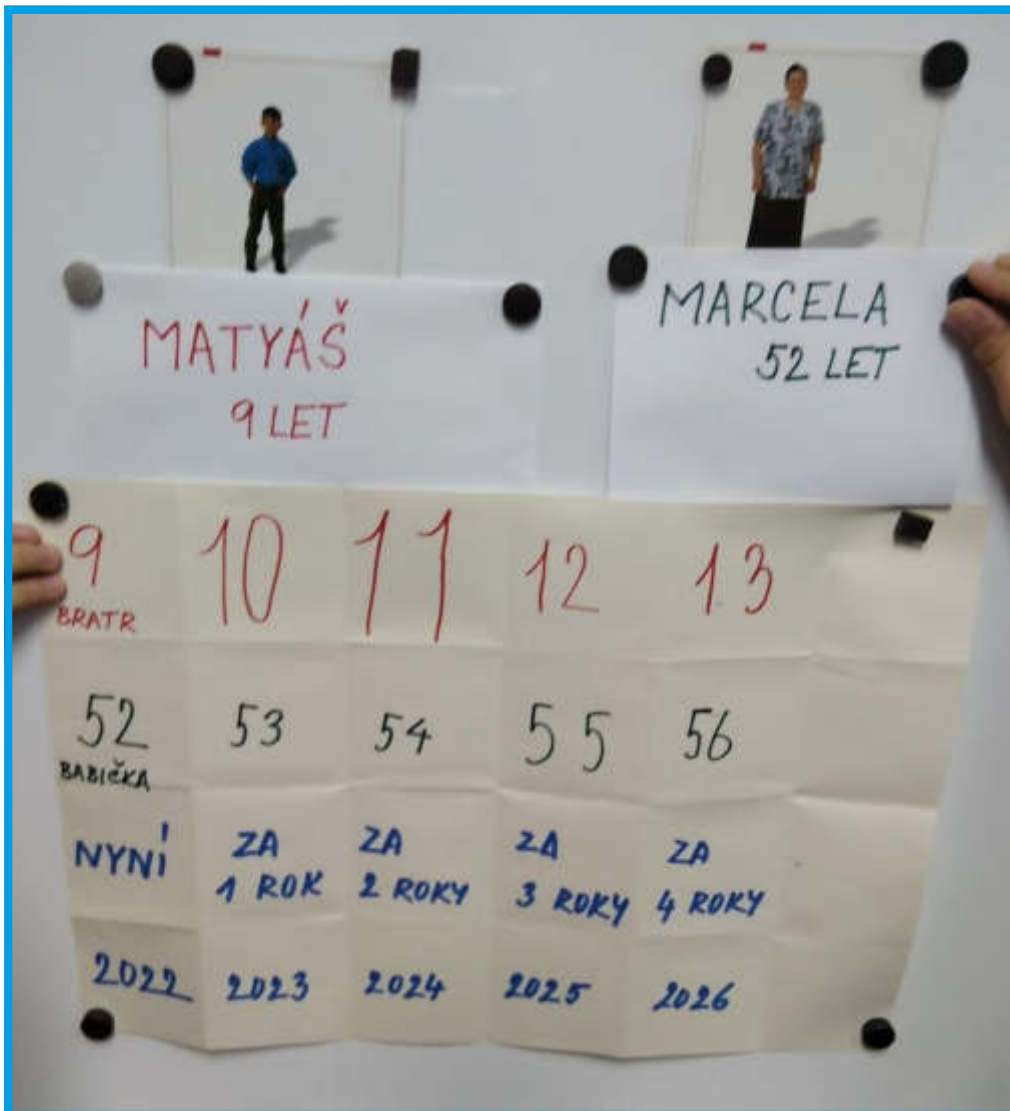 MATYÁŠ
9 LET
MARCELA
52 LET
9 10 11 12 13
BRATR
52 53 54 55 56
BABIČKA
NYNÍ ZA 1 ROK ZA 2 ROKY ZA 3 ROKY ZA 4 ROKY
2022 2023 2024 2025 2026